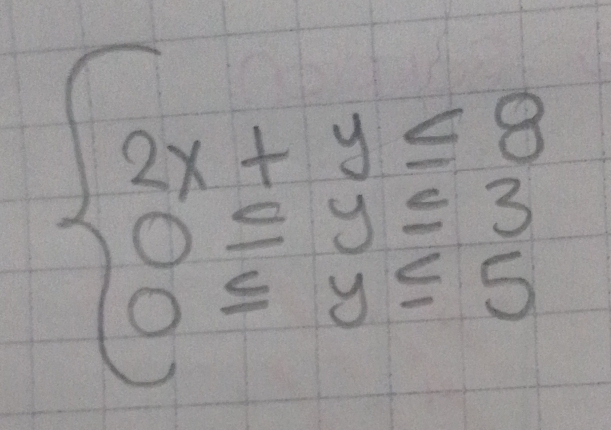 2x + y ≤ 8
0 ≤ y ≤ 3
0 ≤ y ≤ 5